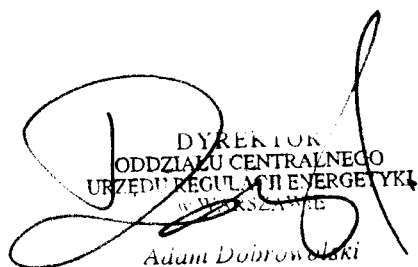 DYREKTOR
ODDZIAŁU CENTRALNEGO
URZĘDU REGULACJI ENERGETYKI
w WARSZAWIE
Adam Dobrowolski